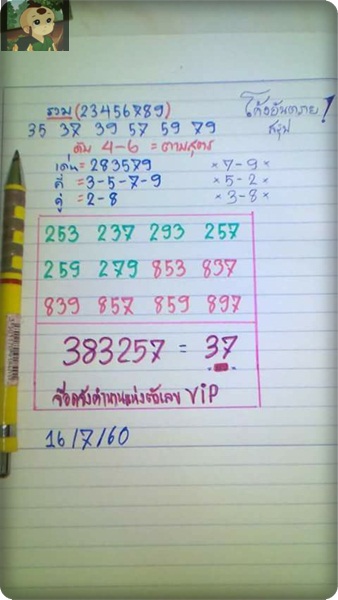 รวม (23456789)
โค้งอันตราย!
สรุป
35 37 39 57 59 79
ดับ 4-6 = ตามสูตร
เด่น = 283579 ×7-9×
คี่ = 3-5-7-9 ×5-2×
คู่ = 2-8 ×3-8×
253 237 293 257
259 279 853 837
839 857 859 897
383257 = 37
แห่งตัวเลข VIP
16/7/60